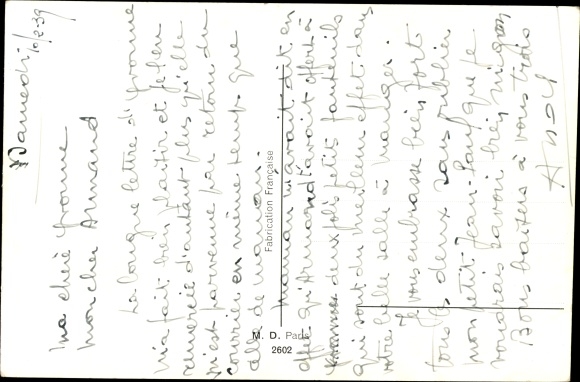 Samedi
10/2-39
Ma chère Yvonne
Mon cher Armand
La longue lettre d'Yvonne
m'a fait très plaisir et je l'en
remercie d'autant plus qu'elle
m'est parvenue par retour du
courrier en même temps que
celle de maman.
Maman m'avait dit en
effet qu'Armand t'avait offert
deux jolis petits fauteuils
qui sont du meilleur effet dans
votre belle salle à manger.
Je vous embrasse bien fort
tous les deux sans oublier
mon petit Jean-Louis que je
voudrais savoir très mignon
Bons baisers à vous trois
Fabrication Française
M. D. Paris
2602